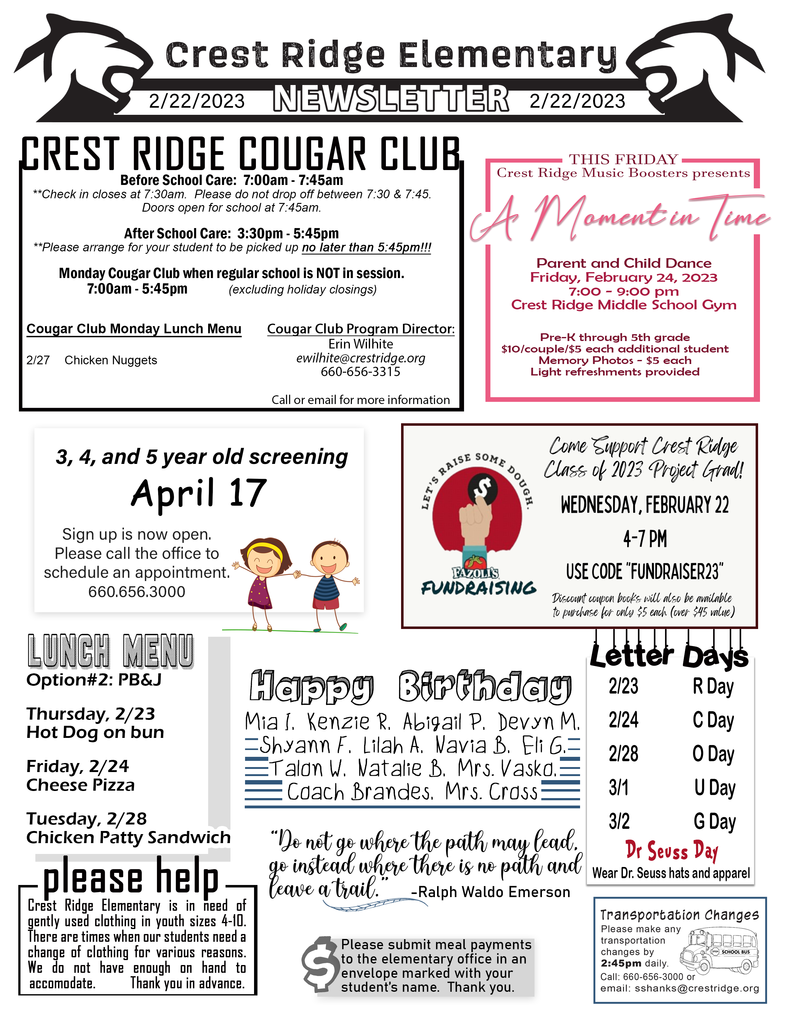 Crest Ridge Elementary
2/22/2023 NEWSLETTER 2/22/2023
CREST RIDGE COUGAR CLUB
Before School Care: 7:00am - 7:45am
**Check in closes at 7:30am. Please do not drop off between 7:30 & 7:45.
Doors open for school at 7:45am.
After School Care: 3:30pm - 5:45pm
**Please arrange for your student to be picked up no later than 5:45pm!!!
Monday Cougar Club when regular school is NOT in session.
7:00am - 5:45pm (excluding holiday closings)
Cougar Club Monday Lunch Menu
2/27 Chicken Nuggets
Cougar Club Program Director:
Erin Wilhite
ewilhite@crestridge.org
660-656-3315
Call or email for more information
THIS FRIDAY
Crest Ridge Music Boosters presents
A Moment in Time
Parent and Child Dance
Friday, February 24, 2023
7:00 - 9:00 pm
Crest Ridge Middle School Gym
Pre-K through 5th grade
$10/couple/$5 each additional student
Memory Photos - $5 each
Light refreshments provided
3, 4, and 5 year old screening
April 17
Sign up is now open.
Please call the office to
schedule an appointment.
660.656.3000
LET'S RAISE SOME DOUGH.
$
FAZOLI'S
FUNDRAISING
Come Support Crest Ridge
Class of 2023 Project Grad!
WEDNESDAY, FEBRUARY 22
4-7 PM
USE CODE "FUNDRAISER23"
Discount coupon books will also be available
to purchase for only $5 each (over $45 value)
LUNCH MENU
Option#2: PB&J
Thursday, 2/23
Hot Dog on bun
Friday, 2/24
Cheese Pizza
Tuesday, 2/28
Chicken Patty Sandwich
Happy Birthday
Mia I. Kenzie R. Abigail P. Devyn M.
Shyann F. Lilah A. Navia B. Eli G.
Talon W. Natalie B. Mrs. Vasko.
Coach Brandes. Mrs. Cross
Letter Days
2/23 R Day
2/24 C Day
2/28 O Day
3/1 U Day
3/2 G Day
Dr Seuss Day
Wear Dr. Seuss hats and apparel
"Do not go where the path may lead,
go instead where there is no path and
leave a trail." -Ralph Waldo Emerson
please help
Crest Ridge Elementary is in need of
gently used clothing in youth sizes 4-10.
There are times when our students need a
change of clothing for various reasons.
We do not have enough on hand to
accomodate. Thank you in advance.
$
Please submit meal payments
to the elementary office in an
envelope marked with your
student's name. Thank you.
Transportation Changes
Please make any
transportation
changes by
2:45pm daily.
SCHOOL BUS
Call: 660-656-3000 or
email: sshanks@crestridge.org